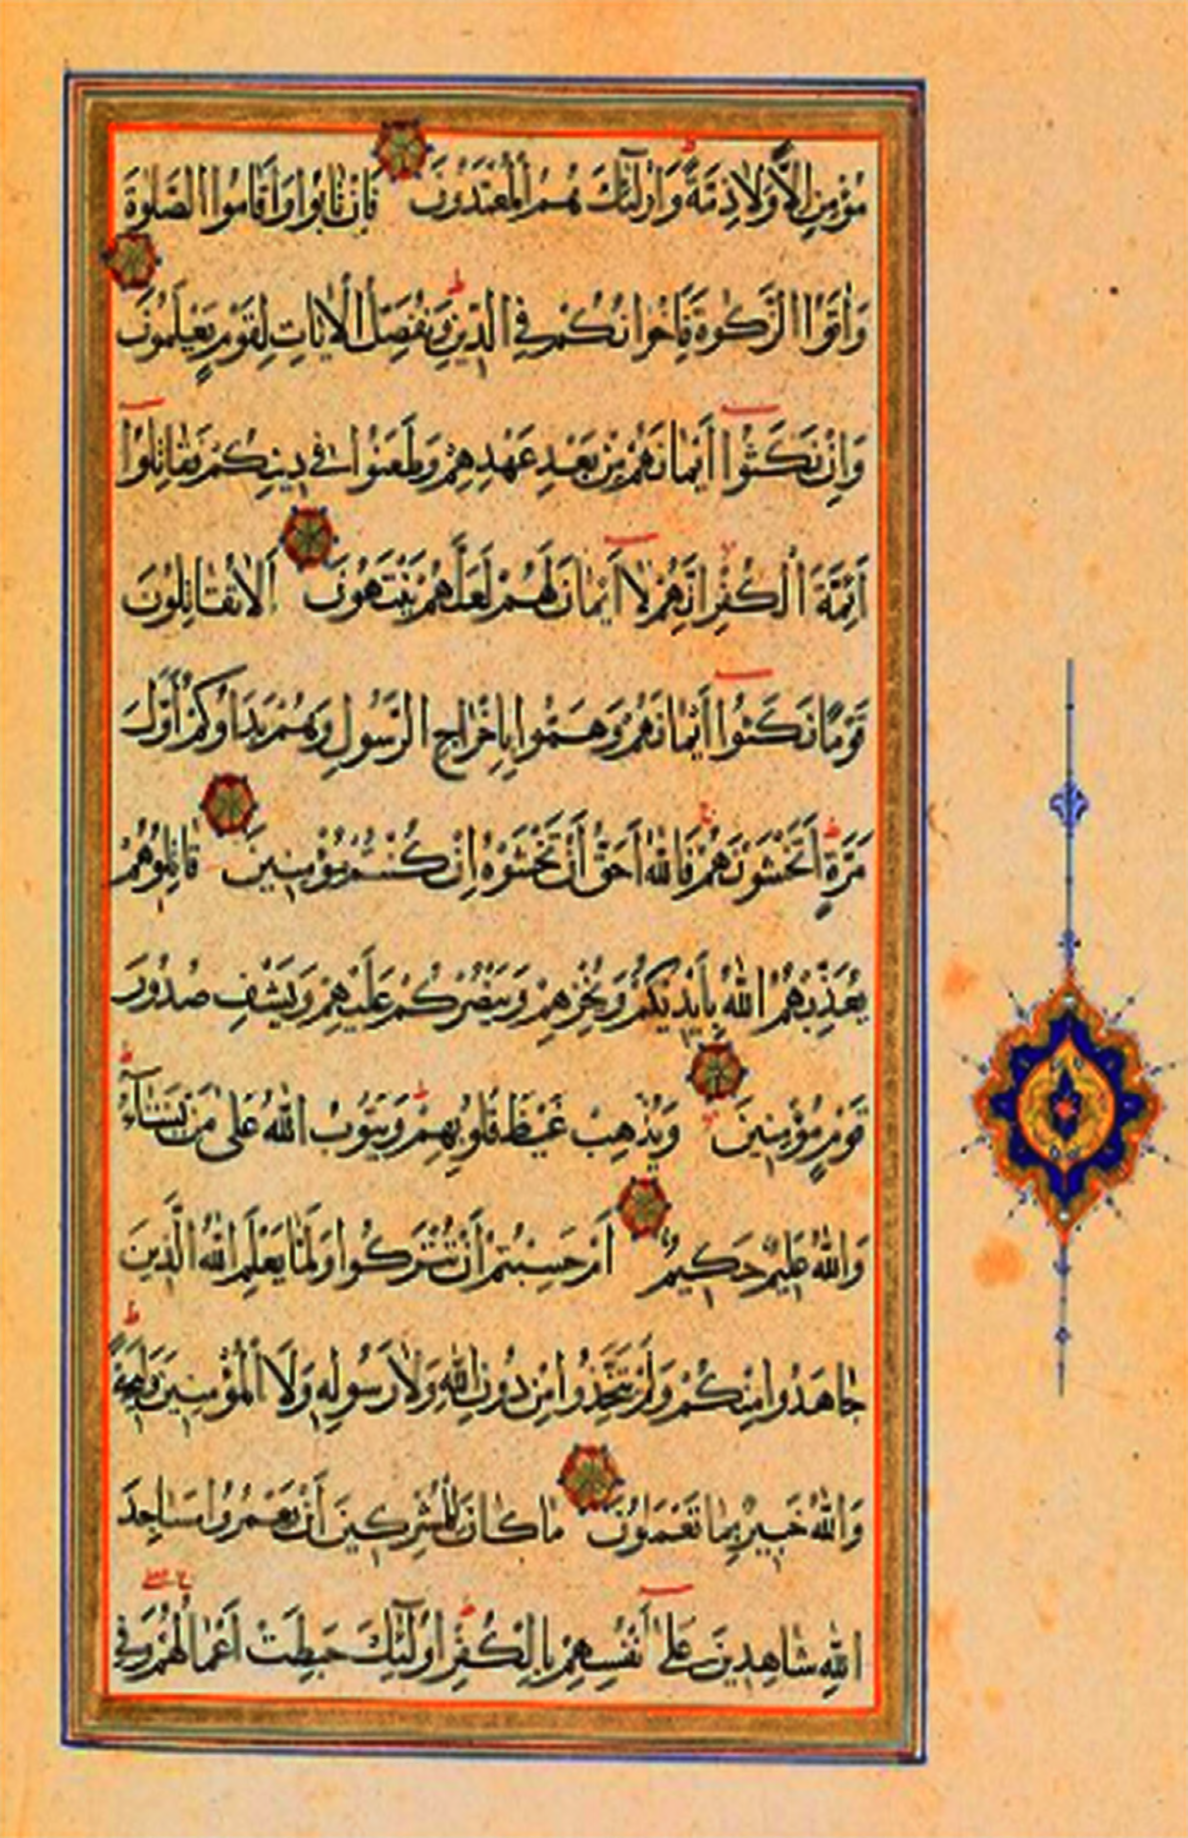 مُؤْمِنٍ اِلًّا وَلَا ذِمَّةً وَاُولٰٓئِكَ هُمُ الْمُعْتَدُونَ فَاِنْ تَابُوا وَاَقَامُوا الصَّلٰوةَ
وَاٰتَوُا الزَّكٰوةَ فَاِخْوَانُكُمْ فِي الدِّينِ وَنُفَصِّلُ الْاٰيَاتِ لِقَوْمٍ يَعْلَمُونَ
وَاِنْ نَكَثُوٓا اَيْمَانَهُمْ مِنْ بَعْدِ عَهْدِهِمْ وَطَعَنُوا فِي دِينِكُمْ فَقَاتِلُوٓا
اَئِمَّةَ الْكُفْرِ اِنَّهُمْ لَٓا اَيْمَانَ لَهُمْ لَعَلَّهُمْ يَنْتَهُونَ اَلَا تُقَاتِلُونَ
قَوْمًا نَكَثُوٓا اَيْمَانَهُمْ وَهَمُّوا بِاِخْرَاجِ الرَّسُولِ وَهُمْ بَدَاُوكُمْ اَوَّلَ
مَرَّةٍ اَتَخْشَوْنَهُمْ فَاللّٰهُ اَحَقُّ اَنْ تَخْشَوْهُ اِنْ كُنْتُمْ مُؤْمِنِينَ قَاتِلُوهُمْ
يُعَذِّبْهُمُ اللّٰهُ بِاَيْدِيكُمْ وَيُخْزِهِمْ وَيَنْصُرْكُمْ عَلَيْهِمْ وَيَشْفِ صُدُورَ
قَوْمٍ مُؤْمِنِينَ وَيُذْهِبْ غَيْظَ قُلُوبِهِمْ وَيَتُوبُ اللّٰهُ عَلٰى مَنْ يَشَٓاءُ
وَاللّٰهُ عَلِيمٌ حَكِيمٌ اَمْ حَسِبْتُمْ اَنْ تُتْرَكُوا وَلَمَّا يَعْلَمِ اللّٰهُ الَّذِينَ
جَاهَدُوا مِنْكُمْ وَلَمْ يَتَّخِذُوا مِنْ دُونِ اللّٰهِ وَلَا رَسُولِهِ وَلَا الْمُؤْمِنِينَ وَلِيجَةً
وَاللّٰهُ خَبِيرٌ بِمَا تَعْمَلُونَ مَا كَانَ لِلْمُشْرِكِينَ اَنْ يَعْمُرُوا مَسَاجِدَ
اللّٰهِ شَاهِدِينَ عَلٰٓى اَنْفُسِهِمْ بِالْكُفْرِ اُولٰٓئِكَ حَبِطَتْ اَعْمَالُهُمْ وَفِي